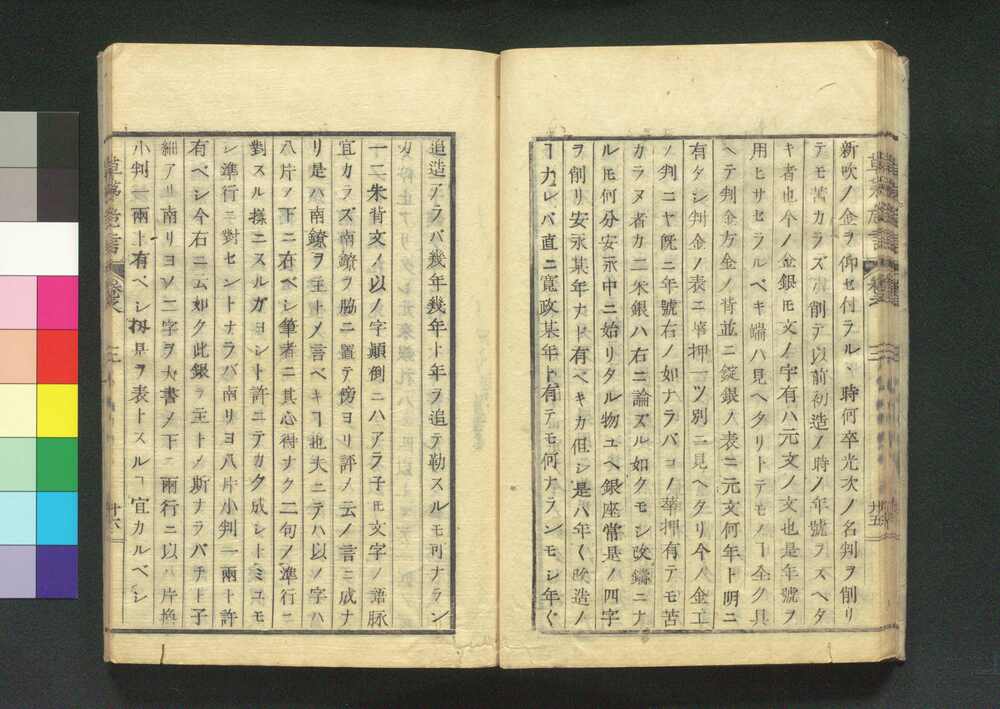 新吹ノ金ヲ仰セ付ラルヽ時何卒光次ノ名判ヲ削リ
テモ苦カラズ削テ以前初造ノ時ノ年號ヲスヘタ
キ者也今ノ金銀モ文ノ字有ハ元文ノ文也是年號ヲ
用ヒサセラルベキ端ハ見ヘタリトテモノヿ全ク具
ヘテ判金方金ノ背並ニ錠銀ノ表ニ元文何年ト明ニ
有タシ判金ノ表ニ華押一ツ別ニ見ヘタリ今ノ金工
ノ判ニヤ既ニ年號右ノ如ナラバコノ華押有テモ苦
カラヌ者カ二朱銀ハ右ニ論ズル如クモシ改鑄ニナ
ルモ何分安永中ニ始リタル物ユヘ銀座當是ノ四字
ヲ削リ安永某年ナド有ベキカ但シ是ハ年々改造ノ
ヿ力レバ直ニ寛政某年ト有テモ何ナランモシ年々
廿五
草茅危言
廿六
追造アラバ幾年幾年ト年ヲ追テ勒スルモ可ナラン
一二朱背文ノ以ノ字顛倒ニハアラ子モ文字ノ語脉
宜カラズ南鐐ヲ脇ニ置テ傍ヨリ評メ云ノ言ニ成ナ
リ是ハ南鐐ヲ主トメ言ベキヿ也夫ニテハ以ノ字ハ
八片ノ下ニ在ベシ筆者ニ其心得ナク二句ノ準行ニ
對スル樣ニスルガヨシト許ニテカク成シトミユモ
シ準行ニ對セントナラバ南リヨ八片小判一兩ト許
有ベシ今右ニ云如ク此銀ヲ主トメ斯ナラバチト子
細アリ南リヨノ二字ヲ大書メ下ニ兩行ニ以八片換
小判一兩ト有ベシ扨是ヲ表トスルヿ宜カルベシ